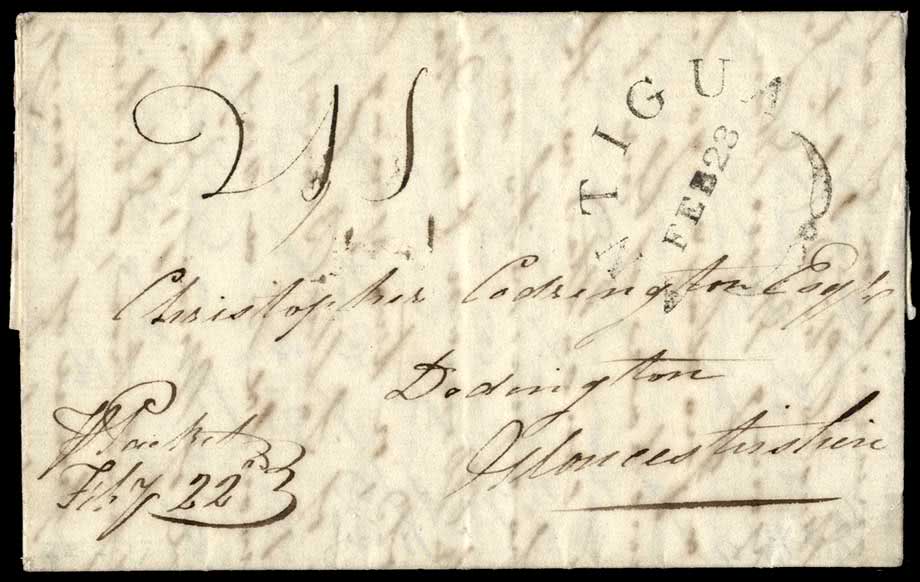 2/11
ANTIGUA
FEB 23
Christopher Codrington Esqr
Dodington
Gloucestershire
P Packet
Feby 22nd